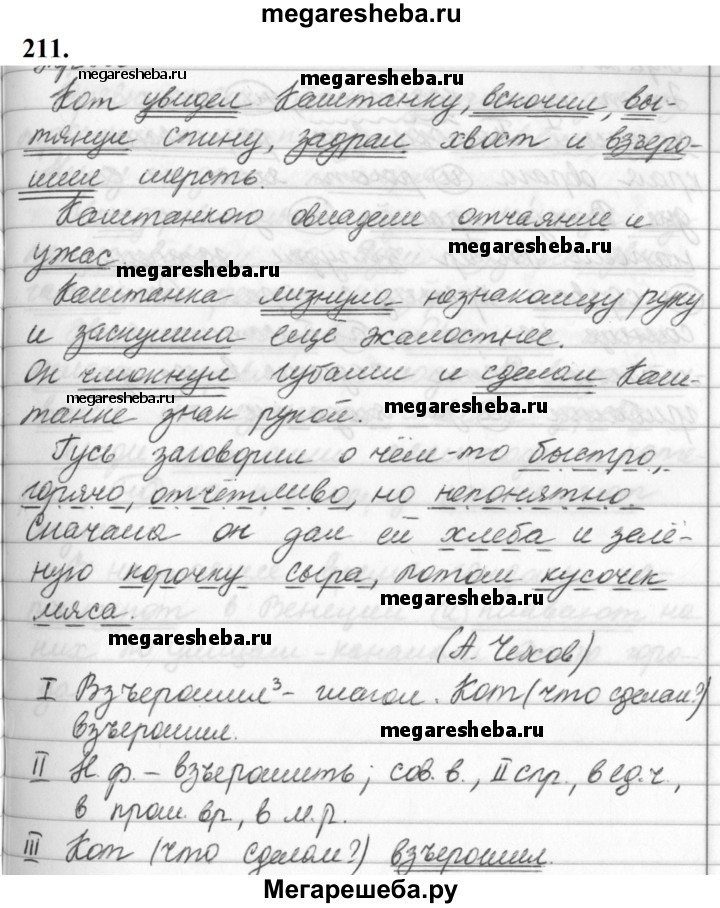 megaresheba.ru
211.
megaresheba.ru megaresheba.ru
Кот увидел Каштанку, вскочил, вы-
тянул спину, задрал хвост и взъеро-
шил шерсть.
Каштанкою овладели отчаяние и
ужас. megaresheba.ru megaresheba.ru
Каштанка лизнула незнакомцу руку
и заскулила ещё жалостнее.
Он чмокнул губами и сделал Каш-
танке знак рукой.
megaresheba.ru megaresheba.ru
Гусь заговорил о чём-то быстро,
горячо, отчётливо, но непонятно.
Сначала он дал ей хлеба и зелё-
ную корочку сыра, потом кусочек
мяса. megaresheba.ru
megaresheba.ru
(А. Чехов)
I Взъерошил³ - глагол. Кот (что сделал?)
взъерошил. megaresheba.ru
II Н.ф. - взъерошить; сов. в., II спр., в ед.ч.,
в прош. вр., в м.р.
III Кот (что сделал?) взъерошил.
Мегарешеба.ру